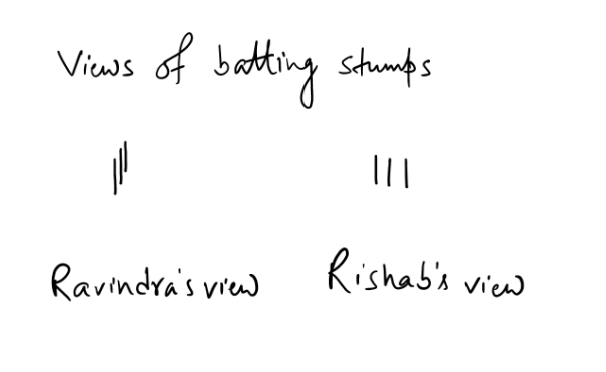 Views of batting stumps
Ravindra's view
Rishab's view